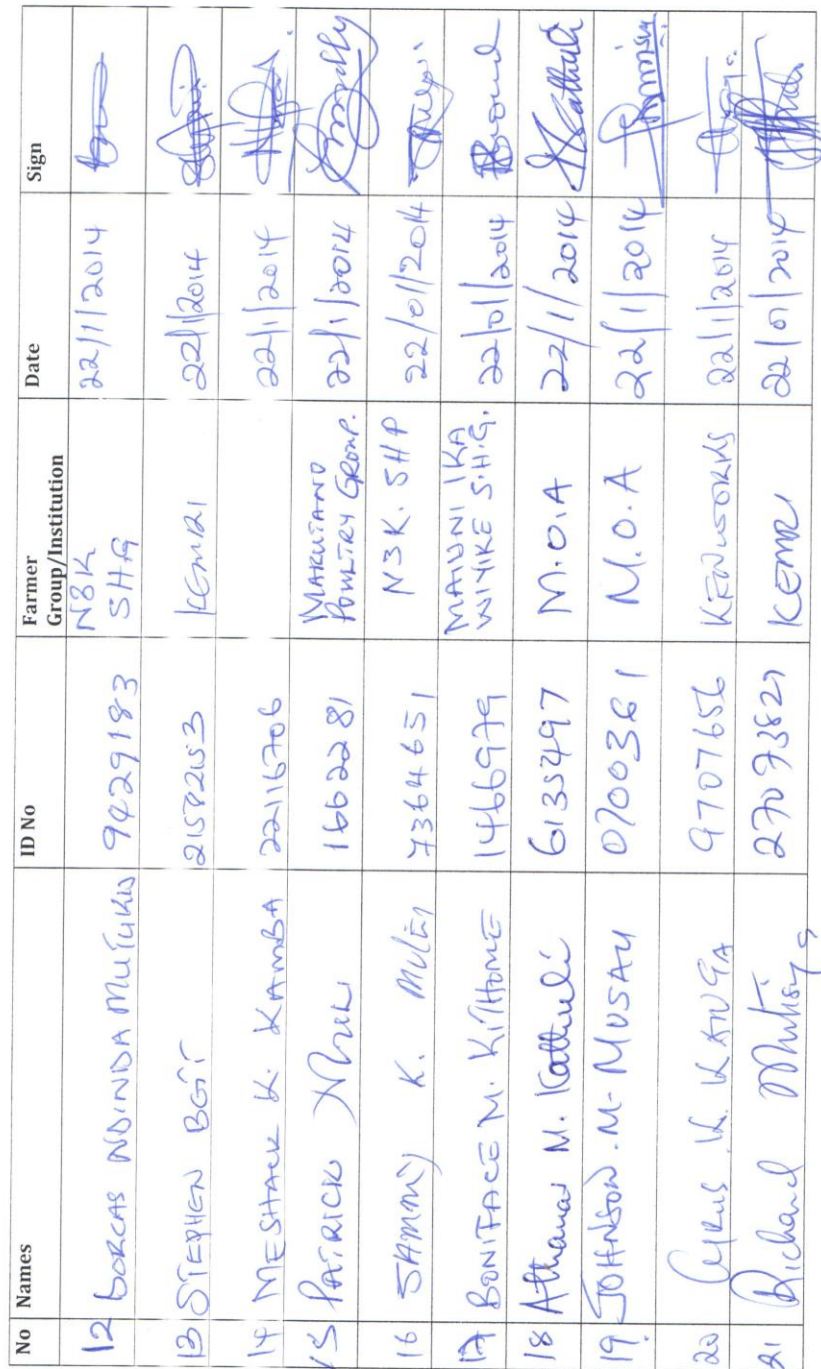 No Names ID No Farmer Group/Institution Date Sign
12 DORCAS NDINDA MUTUKU 9429183 N3K SHG 22/1/2014
13 STEPHEN 21582153 KEMRI 22/1/2014
14 MESHACK K. KAMBA 22116706 22/1/2014
15 PATRICK 16622281 MAKUTANO POULTRY GROUP. 22/1/2014
16 SAMMY K. MULEI 7364651 N3K. SHP 22/01/2014
17 BONIFACE M. KITHOME 1466979 MAIUNI IKA WIYIKE S.H.G. 22/01/2014
18 Athanas M. Kathuli 6135497 M.O.A 22/1/2014
19. JOHNSON. M. MUSAU 0700361 M.O.A 22/1/2014
20 CYRUS K. KANGA 9707656 KENWORKS 22/1/2014
21 Richard Mutisya 27073827 KEMRI 22/01/2014